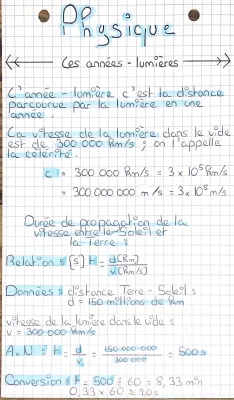 Physique
Les années-lumières
L'année-lumière c'est la distance
parcourue par la lumière en une
année.
La vitesse de la lumière dans le vide
est de 300 000 Km/s ; on l'appelle
la célérité.
c = 300 000 Km/s = 3 x 10⁵ Km/s
= 300 000 000 m/s = 3 x 10⁸ m/s
Durée de propagation de la
vitesse entre le Soleil et
la Terre :
Relation : [s] t = d[Km]
v[Km/s]
Données : distance Terre-Soleil :
d = 150 millions de Km
vitesse de la lumière dans le vide :
v = 300 000 Km/s
A.N : t = d/v = 150 000 000/300 000 = 500 s
Conversion : t = 500 ÷ 60 = 8,33 min
0,33 x 60 ≈ 20 s